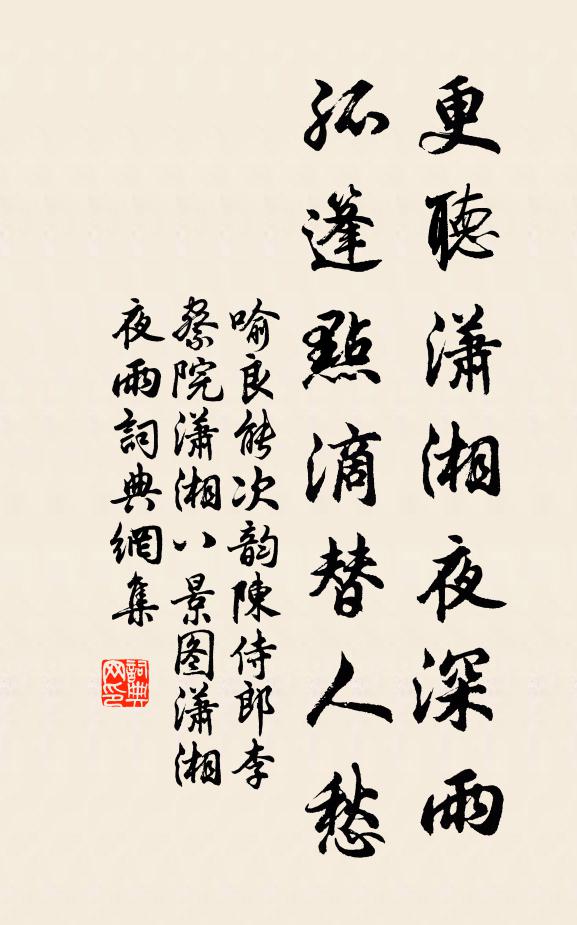 更聽瀟湘夜深雨
孤篷點滴替人愁
喻良能次韵陳侍郎李
察院瀟湘八景图瀟湘
夜雨詞典網集
詞典
网印